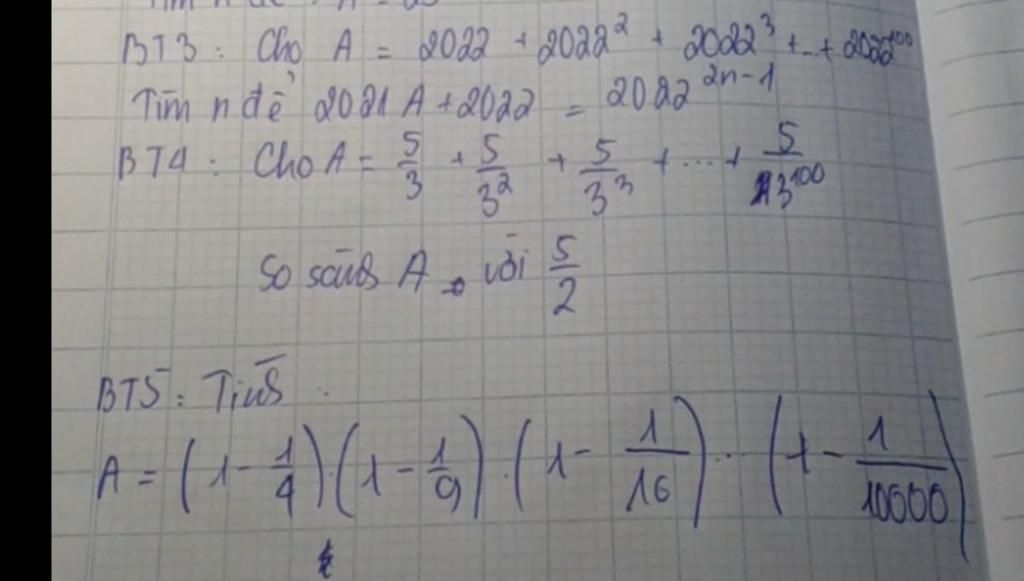 BT3: Cho A = 2022 + 2022² + 2022³ + ... + 2022¹⁰⁰
Tìm n để 2021A + 2022 = 2022²ⁿ⁻¹
BT4: Cho A = 5/3 + 5/3² + 5/3³ + ... + 5/3¹⁰⁰
So sánh A với 5/2
BT5: Tính
A = (1 - 1/4).(1 - 1/9).(1 - 1/16)...(1 - 1/10000)